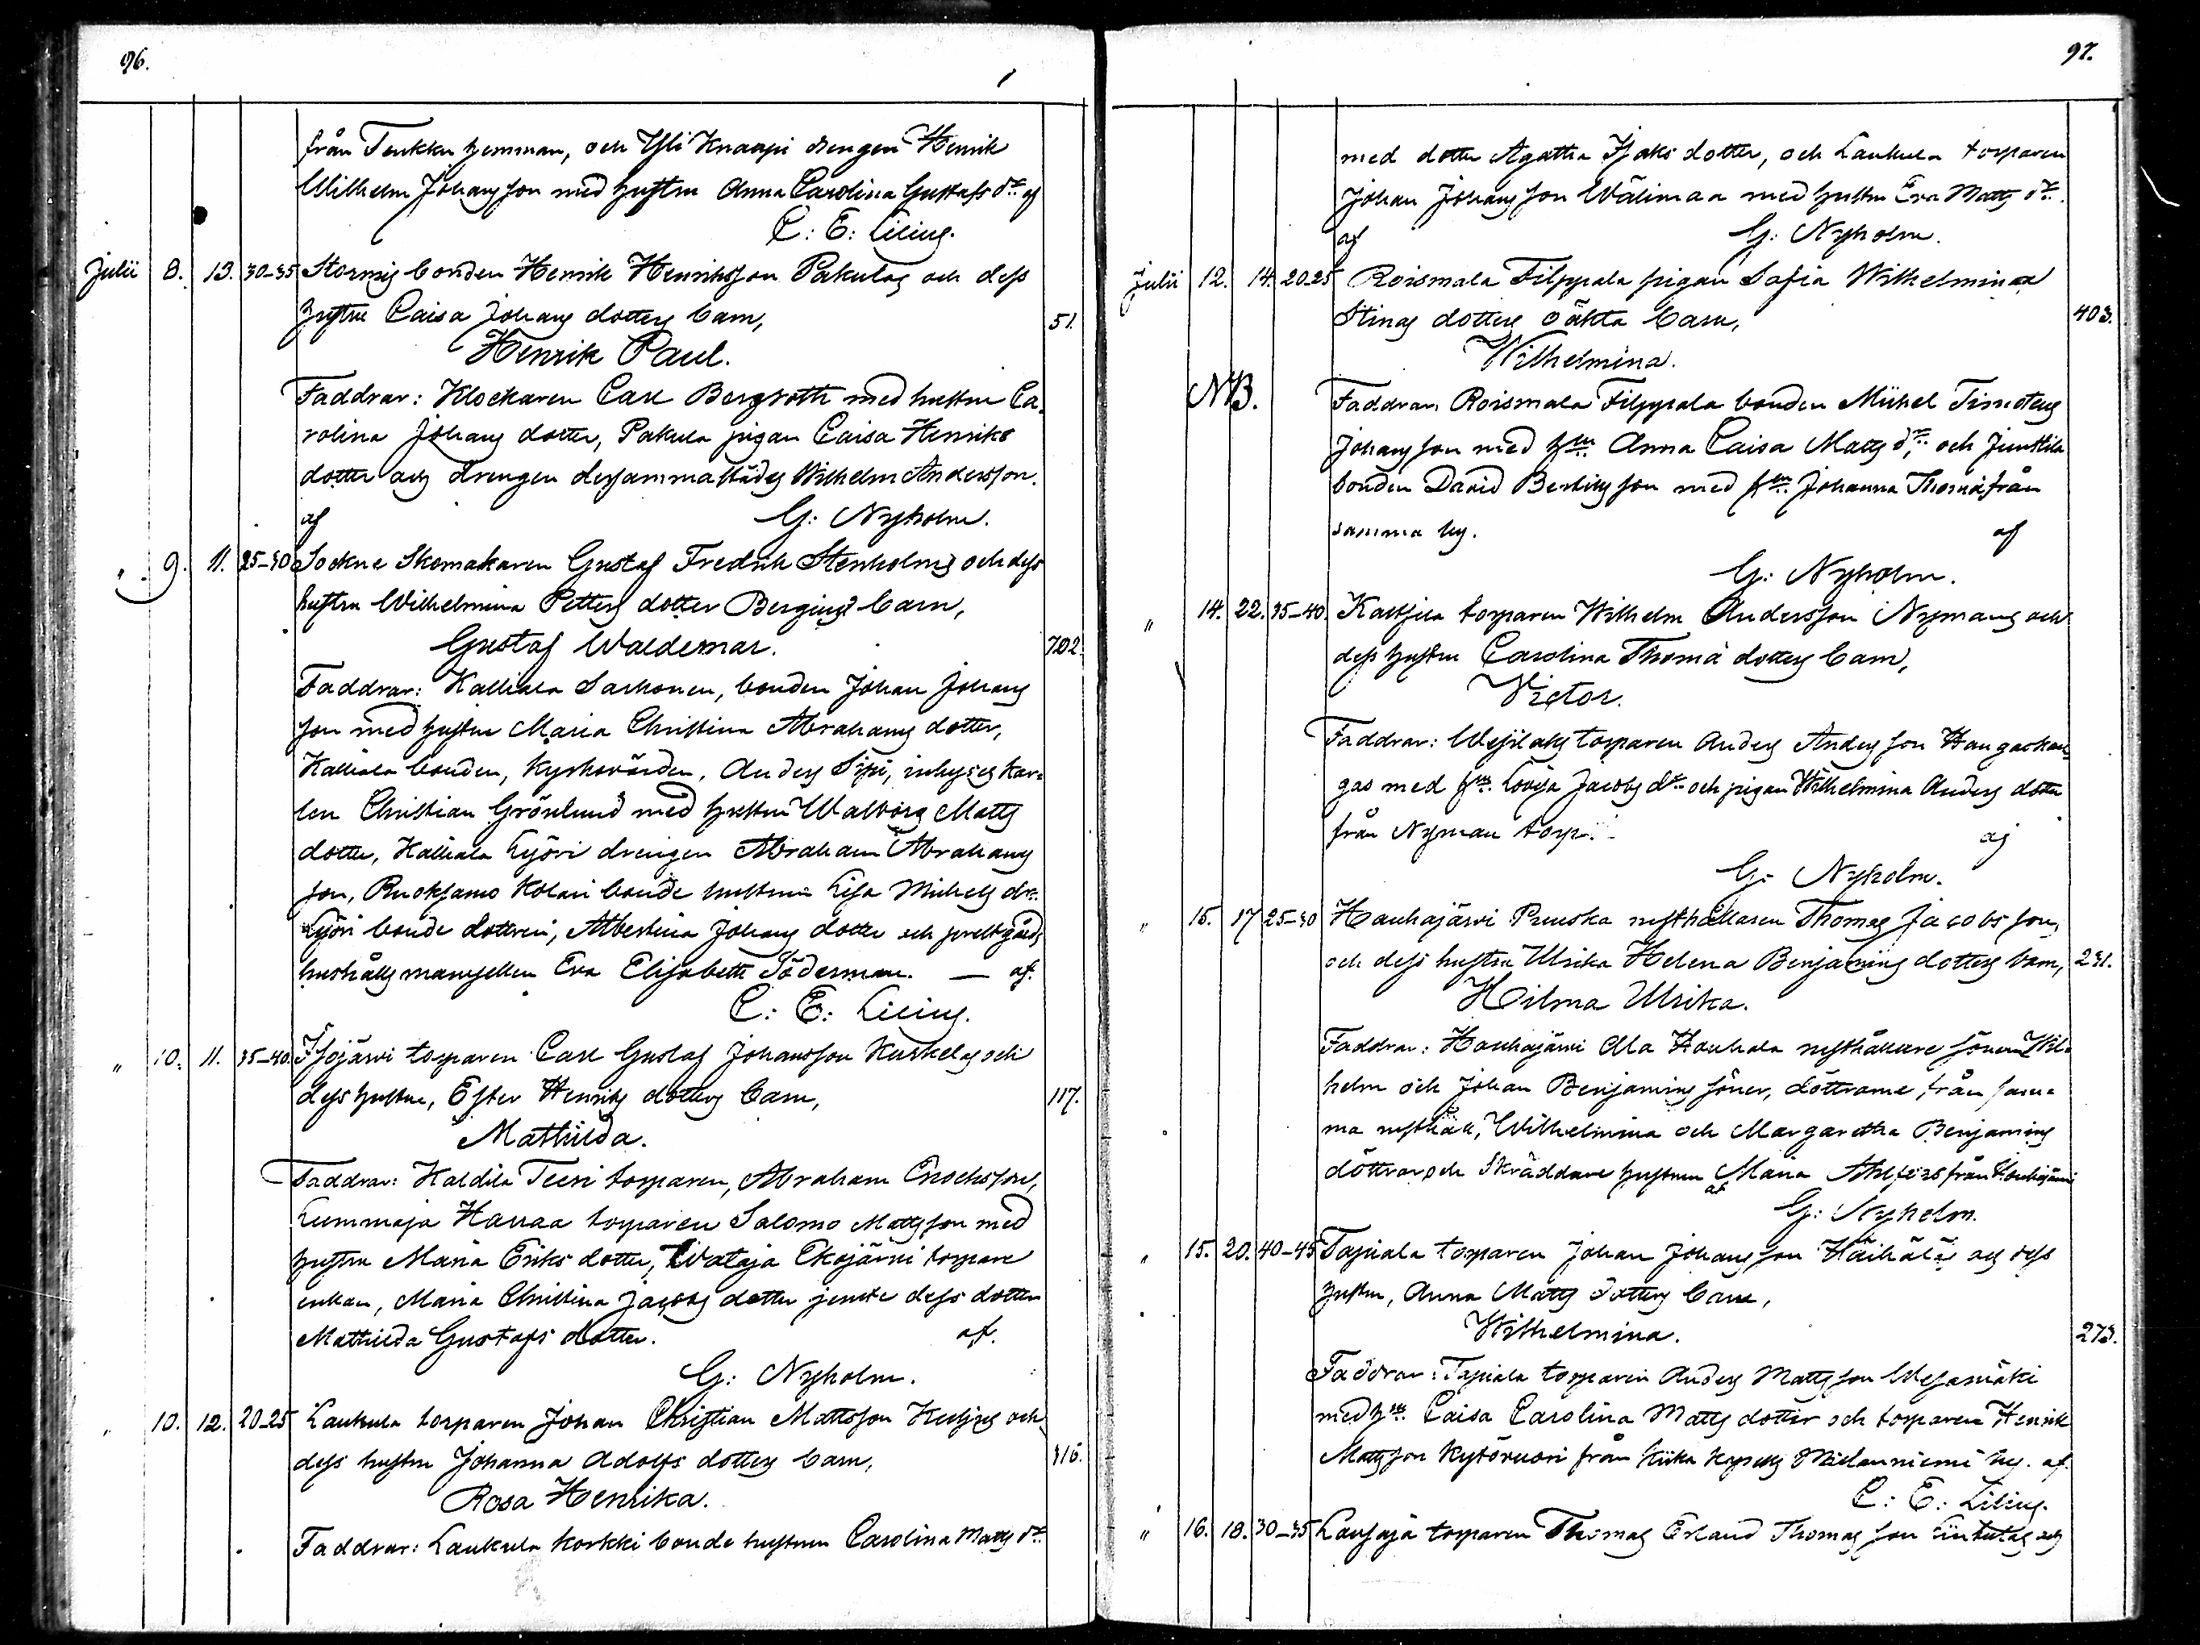 96.
från Teukku hemman, och Yli Knaapi drengen Henrik
Wilhelm Johansson med hustru Anna Carolina Gustafs dr. af
C: E: Lilius.
Julii 8. 13. 30-35 Stormis bonden Henrik Henriksson Pakulas och dess
hustru Caisa Johans dotters barn, 51.
Henrik Paul.
Faddrar: Klockaren Carl Bergroth med hustru Ca-
rolina Johans dotter, Pakula pigan Caisa Henriks
dotter och drengen dersammastädes Wilhelm Andersson.
af G: Nyholm.
" 9. 11. 25-30 Sockne Skomakaren Gustaf Fredrik Stenholms och dess
hustru Wilhelmina Petters dotter Bergius barn,
Gustaf Waldemar. 702.
Faddrar: Kalliala Sarkonen, bonden Johan Johans
son med hustru Maria Christina Abrahams dotter,
Kalliala bonden, Kyrkovärden, Anders Sipi, inhyses kar-
len Christian Grönlund med hustru Walborg Matts
dotter, Kalliala Kyöri drengen Abraham Abrahams
son, Ruoksamo Kolari bonde hustrun Lisa Michels dr.
Kyöri bonde dottren, Albertina Johans dotter och prestgårds
hushålls mamsellen Eva Elisabeth Söderman. — af.
C: E: Lilius.
" 10. 11. 35-40. Isojärvi torparen Carl Gustaf Johansson Kuskelas och
dess hustru, Ester Henriks dotters barn, 117.
Mathilda.
Faddrar: Haldila Teeri torparen, Abraham Enochsson,
Lummaja Harraa torparen Salomo Mattsson med
hustru Maria Eriks dotter, Wataja Ekojärvi torpare
enkan, Maria Christina Jacobs dotter jemte dess dotter
Mathilda Gustafs dotter. af.
G: Nyholm.
" 10. 12. 20-25 Laukula torparen Johan Christian Mattsson och
dess hustru Johanna Adolfs dotters barn, 316.
Rosa Henrika.
Faddrar: Laukula Korkki bonde hustrun Carolina Matts dr.
97.
med dotter Agatha Isaks dotter, och Laukula torparen
Johan Johansson Wälimaa med hustru Eva Matts dr.
af G: Nyholm.
Julii 12. 14. 20-25 Roismala Filppala pigan Sofia Wilhelmina
Stinas dotters oäkta barn, 403.
Wilhelmina.
NB. Faddrar: Roismala Filppala bonden Mickel Timoteus
Johansson med hru. Anna Caisa Matts dr., och Junttila
bonden David Bertilsson med hru. Johanna Thomä från
samma by. af
G: Nyholm.
" 14. 22. 35-40. Kaltsila torparen Wilhelm Andersson Nymans och
dess hustru Carolina Thomä dotters barn,
Victor.
Faddrar: Wejilaks torparen Anders Andersson Hangaskan
gas med hru. Lovisa Jacobs dr. och pigan Wilhelmina Anders dotter
från Nyman torp. af
G: Nyholm.
" 15. 17 25-30 Houhajärvi Pruuska rusthållaren Thomas Jacobsson,
och dess hustru Ulrika Helena Benjamins dotters barn, 231.
Hilma Ulrika.
Faddrar: Houhajärvi Ala Houhala rusthållare sönerne Wil-
helm och Johan Benjamins söner, döttrarne, från sam-
ma rusthåll, Wilhelmina och Margaretha Benjamins
döttrar och Skräddare hustrun Maria Ahlfors från Houhajärvi
af
G: Nyholm.
" 15. 20. 40-45 Tapiala torparen Johan Johansson Häihälä och dess
hustru, Anna Matts dotters barn,
Wilhelmina. 273.
Faddrar: Tapiala torparen Anders Mattsson Wesamäki
med hru. Caisa Carolina Matts dotter och torparen Henrik
Mattsson Kytövuori från Kiika Kapells Kiilanniemi by. af.
C: E: Lilius.
" 16. 18. 30-35 Lousaja torparen Thomas Erland Thomasson och